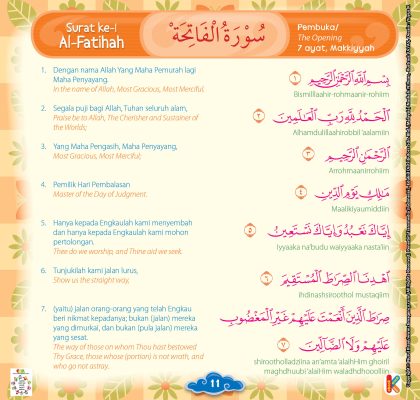 Surat ke-1
Al-Fatihah
سُوْرَةُ الْفَاتِحَةِ
Pembuka/
The Opening
7 ayat, Makkiyyah
1. Dengan nama Allah Yang Maha Pemurah lagi
Maha Penyayang.
In the name of Allah, Most Gracious, Most Merciful.
بِسْمِ اللّٰهِ الرَّحْمٰنِ الرَّحِيْمِ ١
Bismillaahir-rohmaanir-rohiim
2. Segala puji bagi Allah, Tuhan seluruh alam,
Praise be to Allah, The Cherisher and Sustainer of
the Worlds;
اَلْحَمْدُ لِلّٰهِ رَبِّ الْعَالَمِيْنَ ٢
Alhamdulillaahirobbil 'aalamiin
3. Yang Maha Pengasih, Maha Penyayang,
Most Gracious, Most Merciful;
الرَّحْمٰنِ الرَّحِيْمِ ٣
Arrohmaanirrohiim
4. Pemilik Hari Pembalasan
Master of the Day of Judgment.
مَالِكِ يَوْمِ الدِّيْنِ ٤
Maalikiyaumiddiin
5. Hanya kepada Engkaulah kami menyembah
dan hanya kepada Engkaulah kami mohon
pertolongan.
Thee do we worship, and Thine aid we seek.
اِيَّاكَ نَعْبُدُ وَاِيَّاكَ نَسْتَعِيْنُ ٥
Iyyaaka na'budu waiyyaaka nasta'iin
6. Tunjukilah kami jalan lurus,
Show us the straight way,
اِهْدِنَا الصِّرَاطَ الْمُسْتَقِيْمَ ٦
Ihdinashsiroothol mustaqiim
7. (yaitu) jalan orang-orang yang telah Engkau
beri nikmat kepadanya; bukan (jalan) mereka
yang dimurkai, dan bukan (pula jalan) mereka
yang sesat.
The way of those on whom Thou hast bestowed
Thy Grace, those whose (portion) is not wrath, and
who go not astray.
صِرَاطَ الَّذِيْنَ اَنْعَمْتَ عَلَيْهِمْ غَيْرِ الْمَغْضُوْبِ
عَلَيْهِمْ وَلَا الضَّالِّيْنَ ٧
shiroothollladziina an'amta 'alaihim ghoiril
maghdhuubi 'alaihim waladhdhooolliin
11